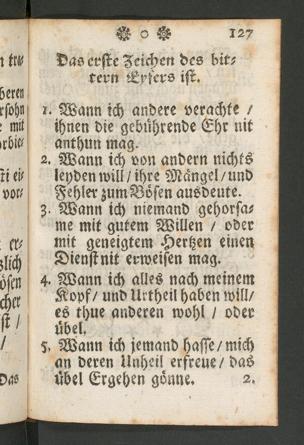 ❀ o ❀ 127
Das erste Zeichen des bit⸗
tern Eyfers ist.
1. Wann ich andere verachte /
ihnen die gebührende Ehr nit
anthun mag.
2. Wann ich von andern nichts
leyden will / ihre Mängel / und
Fehler zum Bösen ausdeute.
3. Wann ich niemand gehorsa⸗
me mit gutem Willen / oder
mit geneigtem Hertzen einen
Dienst nit erweisen mag.
4. Wann ich alles nach meinem
Kopf / und Urtheil haben will /
es thue anderen wohl / oder
übel.
5. Wann ich jemand hasse / mich
an deren Unheil erfreue / das
übel Ergehen gönne. 2.